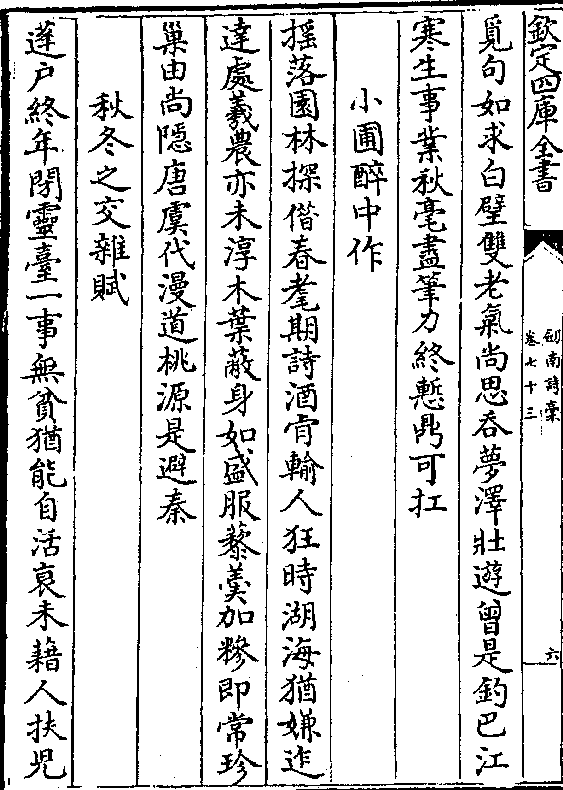 欽定四庫全書
劒南詩稾
卷七十三
六
覓句如求白璧雙老氣尚思吞夢澤壯遊曾是釣巴江
寒生事業秋毫盡筆力終慙鼎可扛
小圃醉中作
揺落園林探偕春耄期詩酒肯輸人狂時湖海猶嫌迮
達處羲農亦未淳木葉蔽身如盛服藜羮加糝即常珍
巢由尚隠唐虞代漫道桃源是避秦
秋冬之交雜賦
蓬户終年閉靈臺一事無貧猶能自活衰未藉人扶兒